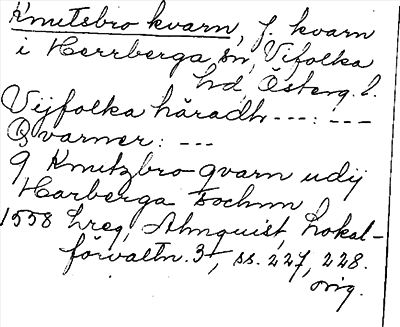 Knutsbro kvarn, f. kvarn
i Herrberga sn, Vifolka
hd, Österg. l.
Vijfolka häradh ---: ---
Qvarner: ---
9 Knutzbro qvarn udij
Harberga sochnn
1558 hreg, Almquist, Lokal-
förvaltn. 3, ss. 227, 228.
orig.